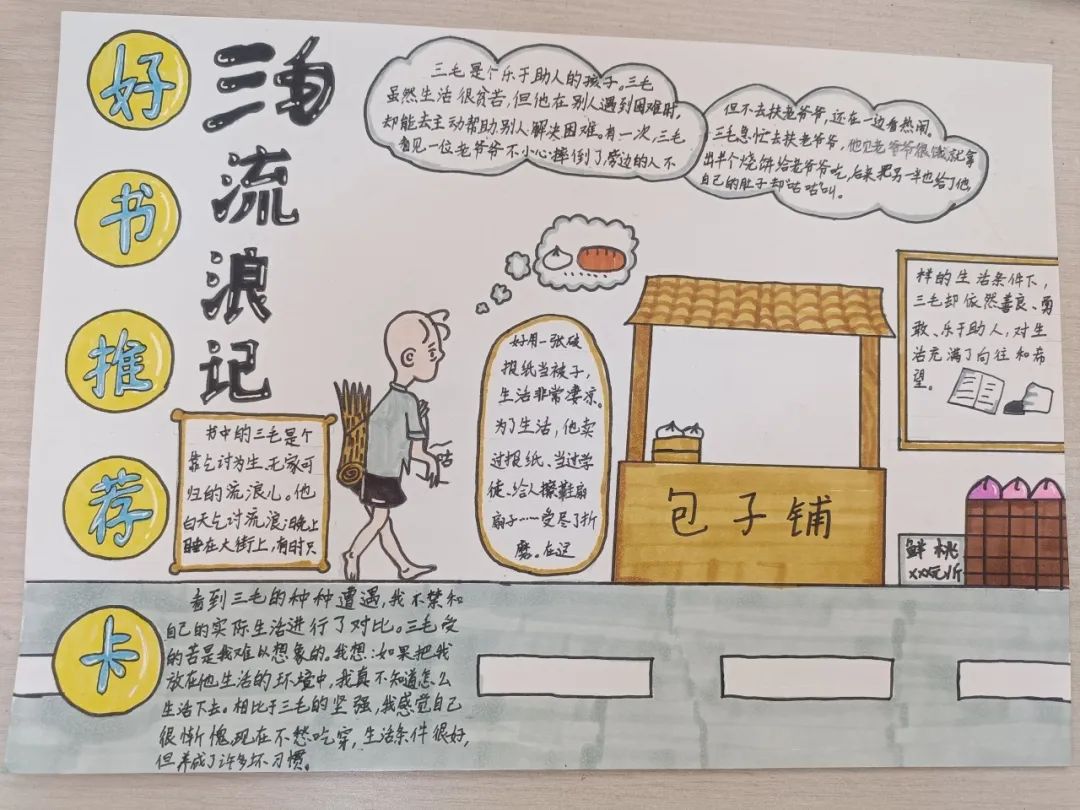 好书推荐卡
三毛流浪记
三毛是个乐于助人的孩子。三毛
虽然生活很贫苦，但他在别人遇到困难时，
却能去主动帮助别人解决困难。有一次，三毛
看见一位老爷爷不小心摔倒了，旁边的人不
但不去扶老爷爷，还在一边看热闹。
三毛急忙去扶老爷爷，他见老爷爷很饿，就拿
出半个烧饼给老爷爷吃，后来把另一半也给了他，
自己的肚子却“咕咕”叫。
书中的三毛是个
靠乞讨为生，无家可
归的流浪儿。他
白天乞讨流浪，晚上
睡在大街上，有时只
好用一张破
报纸当被子，
生活非常凄凉。
为了生活，他卖
过报纸、当过学
徒、给人擦鞋扇
扇子……受尽了折
磨。在这
样的生活条件下，
三毛却依然善良、勇
敢、乐于助人，对生
活充满了向往和希
望。
咕
包子铺
鲜桃
XX元/斤
看到三毛的种种遭遇，我不禁和
自己的实际生活进行了对比。三毛受
的苦是我难以想象的。我想：如果把我
放在他生活的环境中，我真不知道怎么
生活下去。相比于三毛的坚强，我感觉自己
很惭愧，现在不愁吃穿，生活条件很好，
但养成了许多坏习惯。